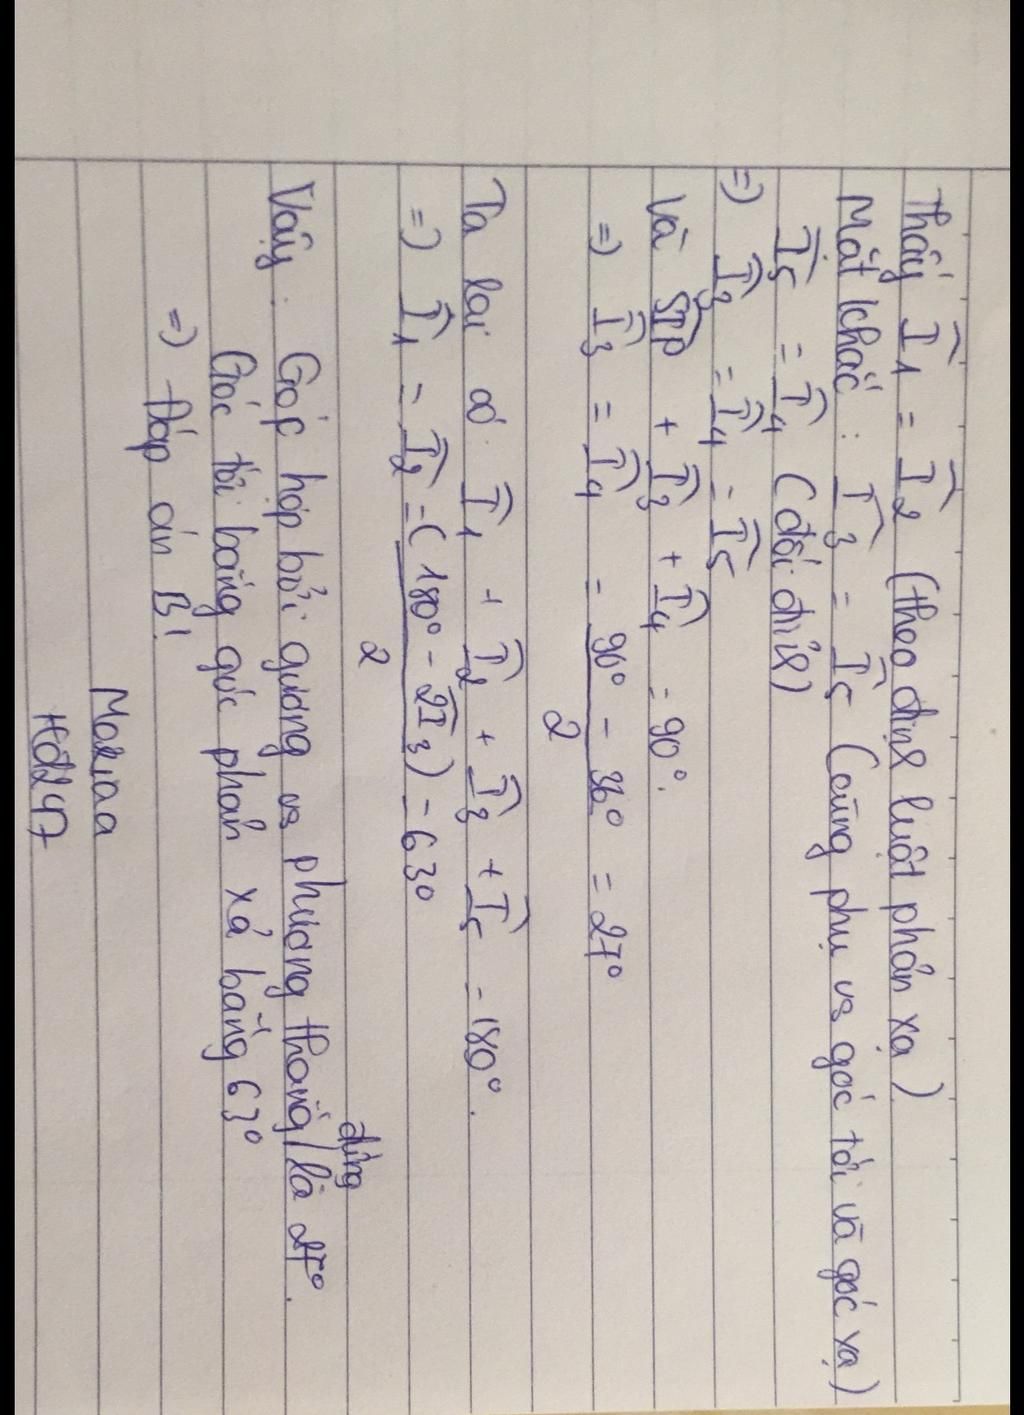 Thấy Î1 = Î2 (theo định luật phản xạ)
Mặt khác : Î3 = Î5 (cùng phụ vs góc tới và góc xạ)
Î5 = Î4 (đối đỉnh)
=) Î3 = Î4 = Î5
Và SIP + Î3 + Î4 = 90°.
=) Î3 = Î4 = 90° - 36° / 2 = 27°
Ta lại có Î1 + Î2 + Î3 + Î5 = 180°.
=) Î1 = Î2 = (180° - 2Î3) / 2 = 63°
Vậy : Góc hợp bởi gương vs phương thẳng / đứng là 27°.
Góc tới bằng góc phản xạ bằng 63°
=) Đáp án B!
Mariaa
Hđ247